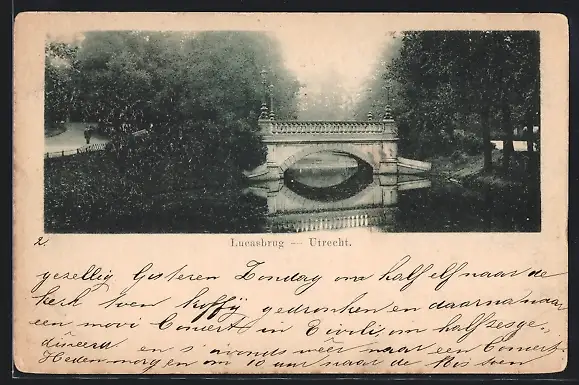 Lucasbrug — Utrecht.
2.
gezellig Gisteren Zondag om half elf naar de
kerk toen koffij gedronken en daarna naar
een mooi Concert in Tivoli om half zes ge-
dineerd en s'avonds wêer naar een Concert.
Heden morgen om 10 uur naar de toen